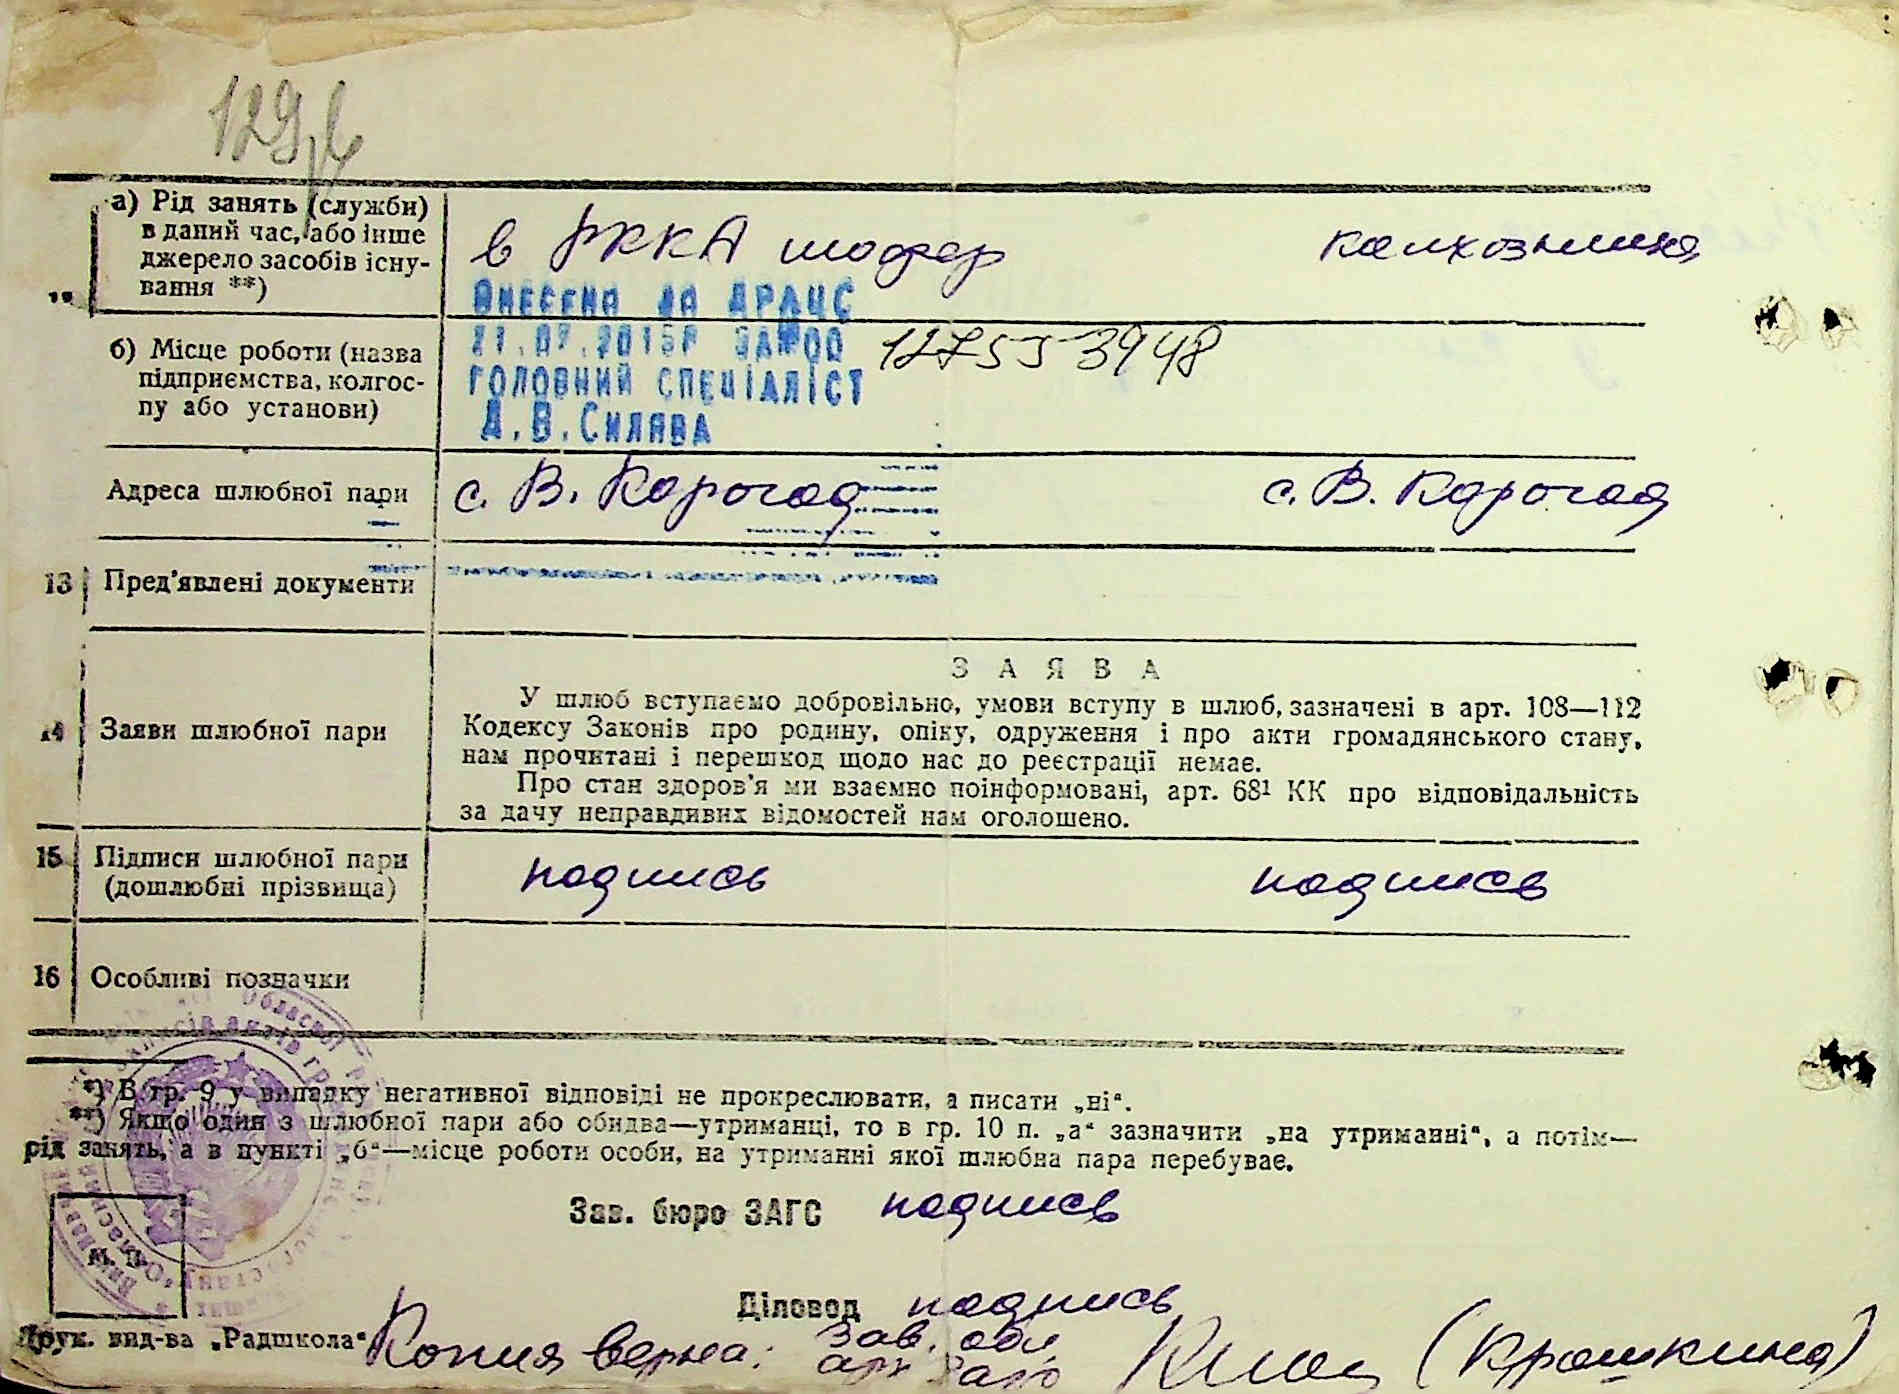 129
а) Рід занять (служби)
в даний час, або інше
джерело засобів існу-
вання **)
в РККА шофер
колхозница
Внесена до ДРАЦС
21.07.2015р ЗА№00 127553948
головний спеціаліст
А.В.Силява
б) Місце роботи (назва
підприємства, колгос-
пу або установи)
Адреса шлюбної пари
с. В. Корогод
с. В. Корогод
13 Пред’явлені документи
14 Заяви шлюбної пари
ЗАЯВА
У шлюб вступаємо добровільно, умови вступу в шлюб, зазначені в арт. 108—112
Кодексу Законів про родину, опіку, одруження і про акти громадянського стану,
нам прочитані і перешкод щодо нас до реєстрації немає.
Про стан здоров’я ми взаємно поінформовані, арт. 68¹ КК про відповідальність
за дачу неправдивих відомостей нам оголошено.
15 Підписи шлюбної пари
(дошлюбні прізвища)
подпись
подпись
16 Особливі позначки
*) В гр. 9 у випадку негативної відповіді не прокреслювати, а писати „ні“.
**) Якщо один з шлюбної пари або обидва—утриманці, то в гр. 10 п. „а“ зазначити „на утриманні“, а потім—
рід занять, а в пункті „б“—місце роботи особи, на утриманні якої шлюбна пара перебуває.
Зав. бюро ЗАГС подпись
М. П.
Діловод подпись
Друк. вид-ва „Радшкола“
Копия верна: Зав. обл.
арх Загс
(Крошкина)